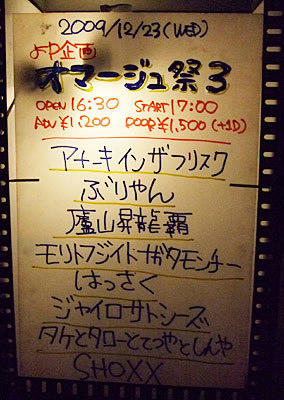 2009/12/23(WED)
よP企画
オマージュ祭3
OPEN 16:30 START 17:00
ADV ¥1,200 DOOR ¥1,500 (+1D)
アナーキインザフリスク
ぶりやん
廬山昇龍覇
モリトフジイドーザタモンチー
はっさく
ジャイロサトシーズ
タケとタローとてつやとしんや
SHOXX